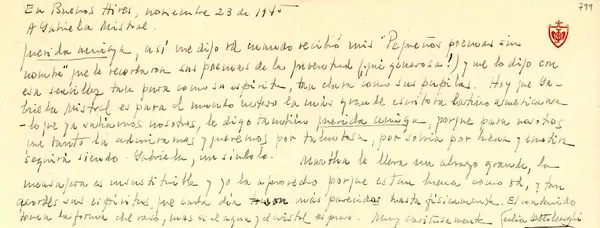 En Buenos Aires, noviembre 23 de 1945
799
A Gabriela Mistral.
Querida amiga, así me dijo Vd. cuando recibió mis "Pequeños poemas sin
nombre" que le recordaron sus poemas de la juventud (¡qué generosa!) y me lo dijo con
esa sencillez tan pura como su espíritu, tan clara como sus pupilas. Hoy que Ga-
briela Mistral es para el mundo entero la más grande escritora latino americana
- lo que ya sabíamos nosotros, le digo también querida amiga, porque para nosotros
que tanto la admiramos y queremos por talentosa, por sabia por buena y
seguirá siendo Gabriela, un símbolo. Martha le lleva un abrazo grande, la
mensajera es insustituible y yo la aprovecho porque es tan buena como Vd. y tan
acordes sus espíritus, que cada día son más parecidas hasta físicamente. El contenido
toma la forma del vaso, mas si el agua y el cristal es puro. Muy cariñosamente Julia